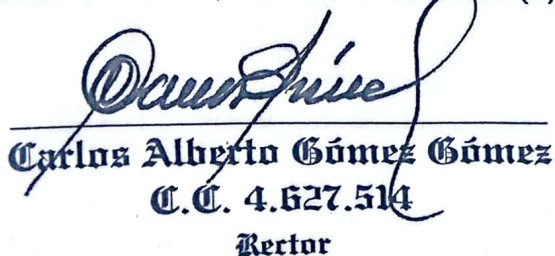 Carlos Alberto Gómez Gómez
C.C. 4.627.514
Rector